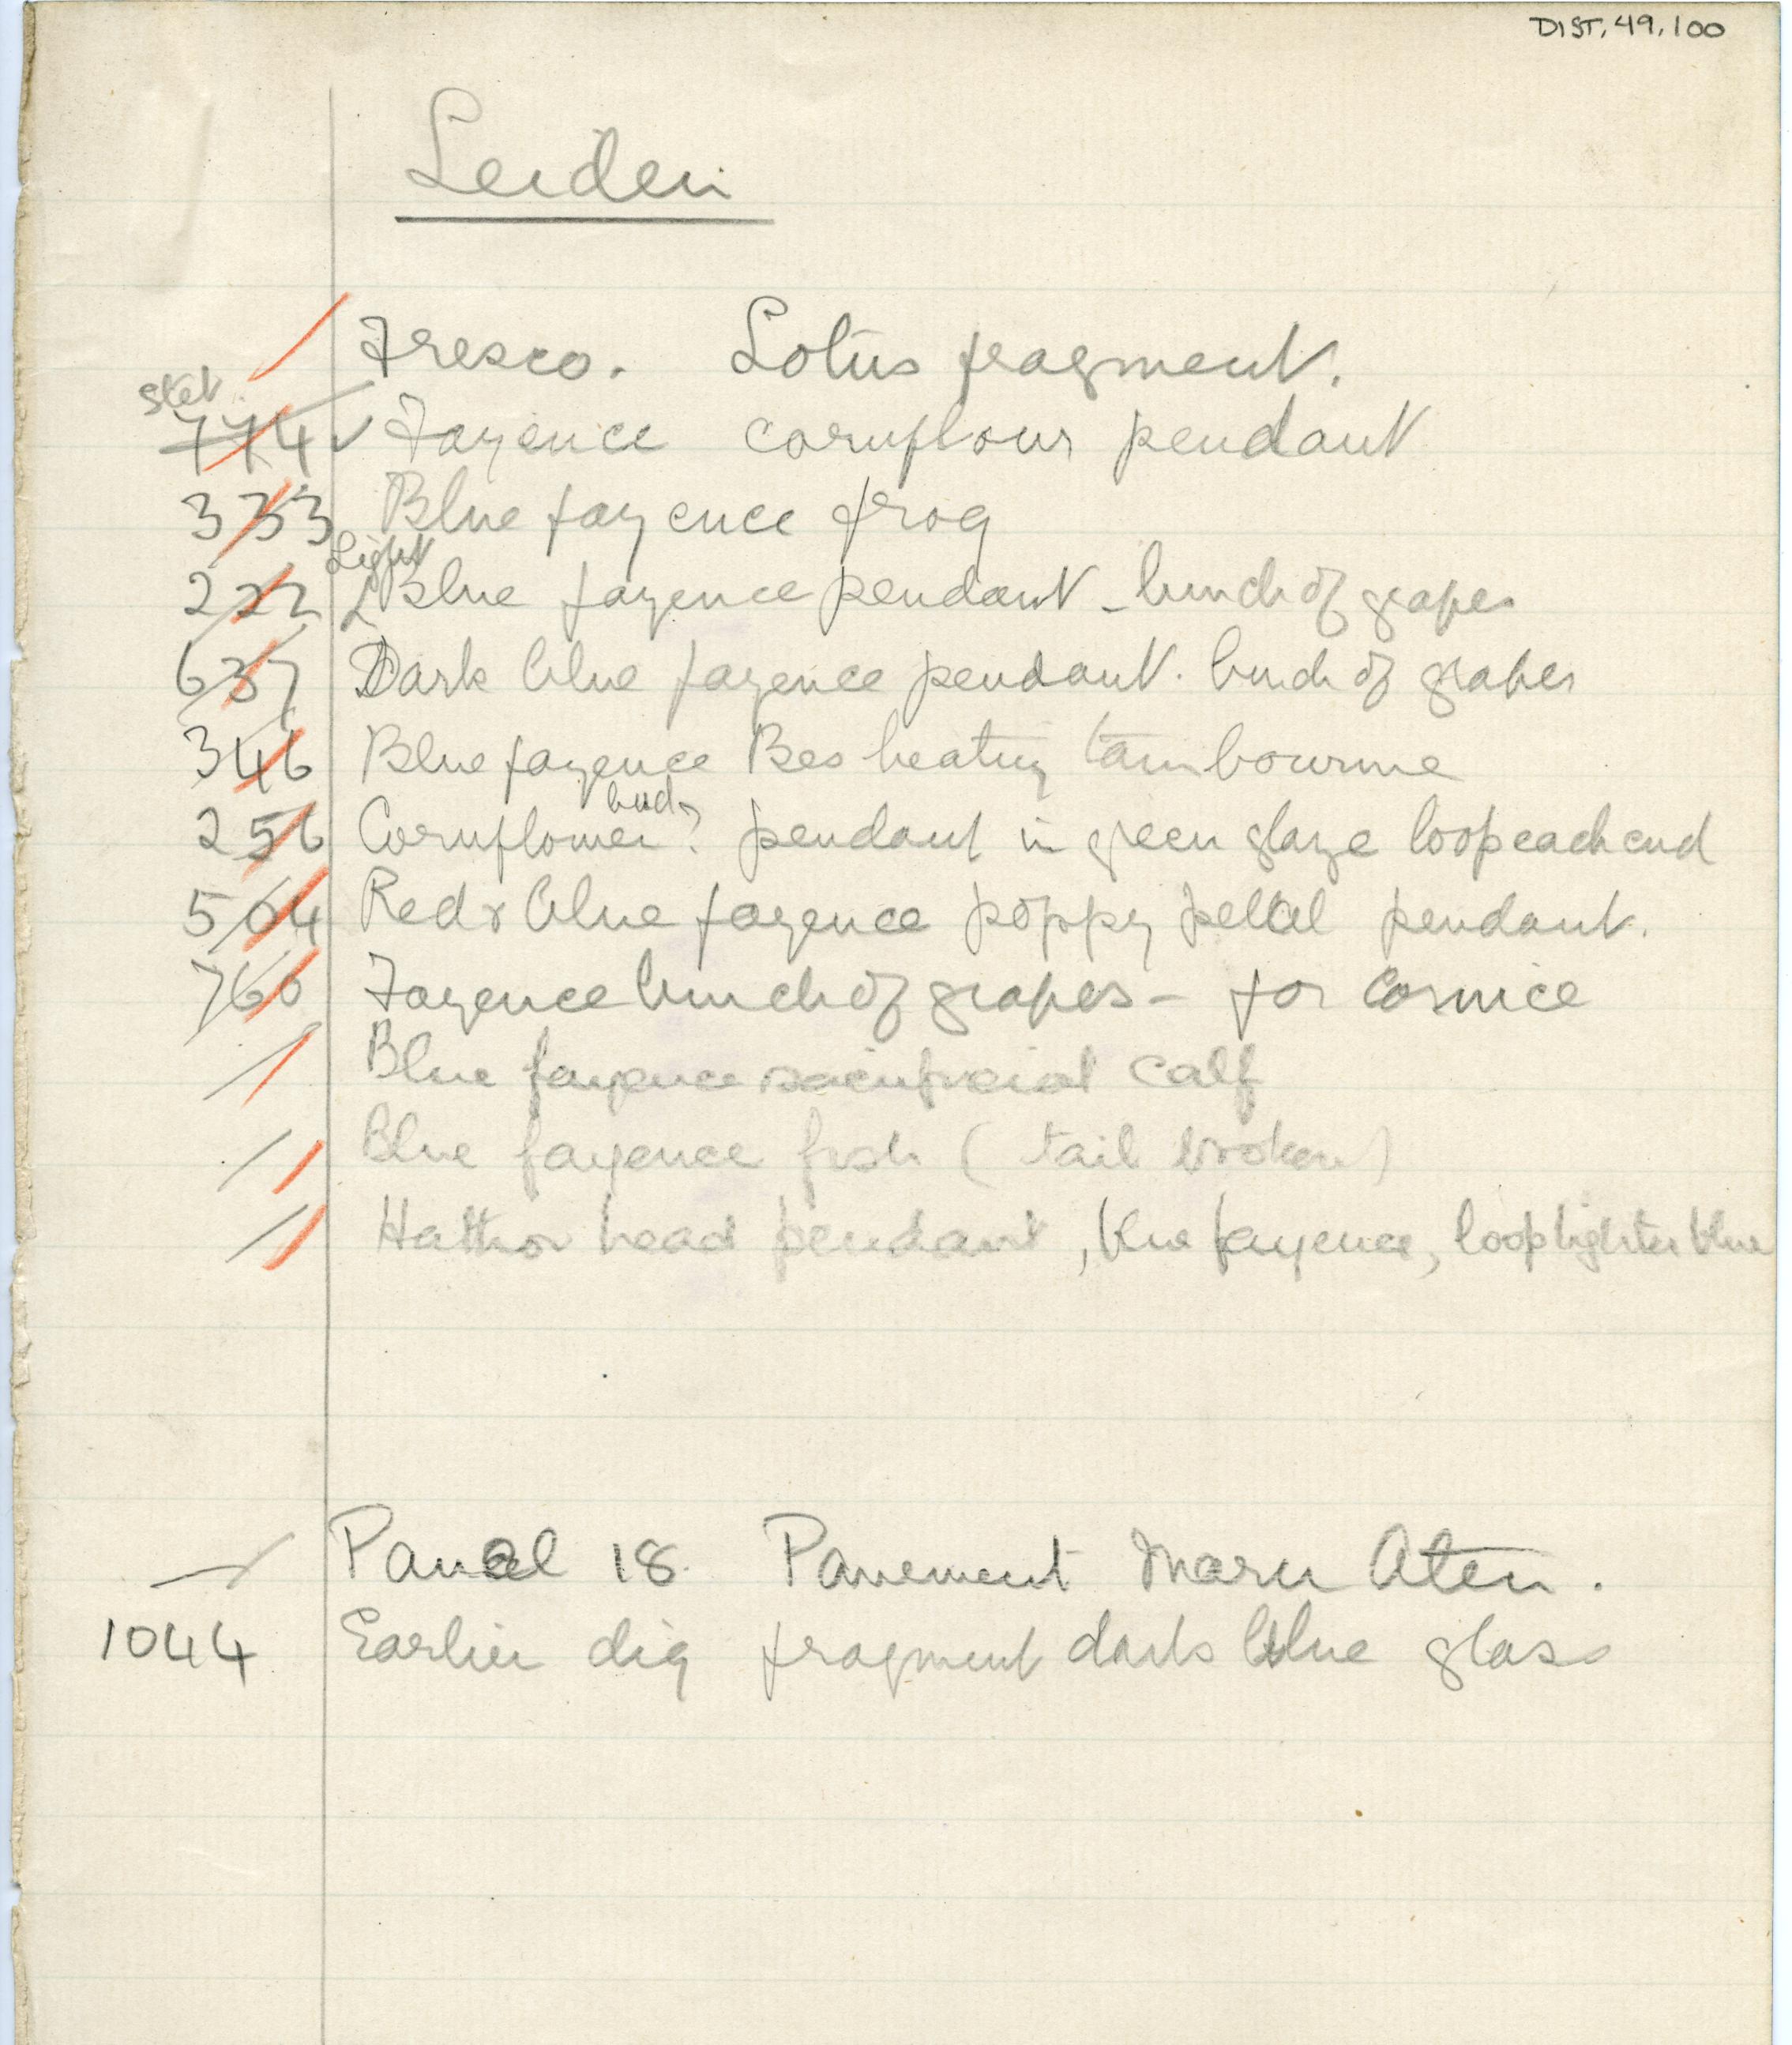 DIST. 49.100
Leiden
Fresco. Lotus fragment.
stet
774 Fayence cornflour pendant
333 Blue fayence frog
Light
222 Blue fayence pendant - bunch of grapes
637 Dark blue fayence pendant. bunch of grapes
346 Blue fayence Bes beating tambourine
bud?
256 Cornflower pendant in green glaze loop each end
504 Red & blue fayence poppy petal pendant.
760 Fayence bunch of grapes - for cornice
Blue fayence sacrificial calf
Blue fayence fish (tail broken)
Hathor head pendant, blue fayence, loop lighter blue
Panel 18. Pavement Maru Aten.
1044 Earlier dig fragment dark blue glass